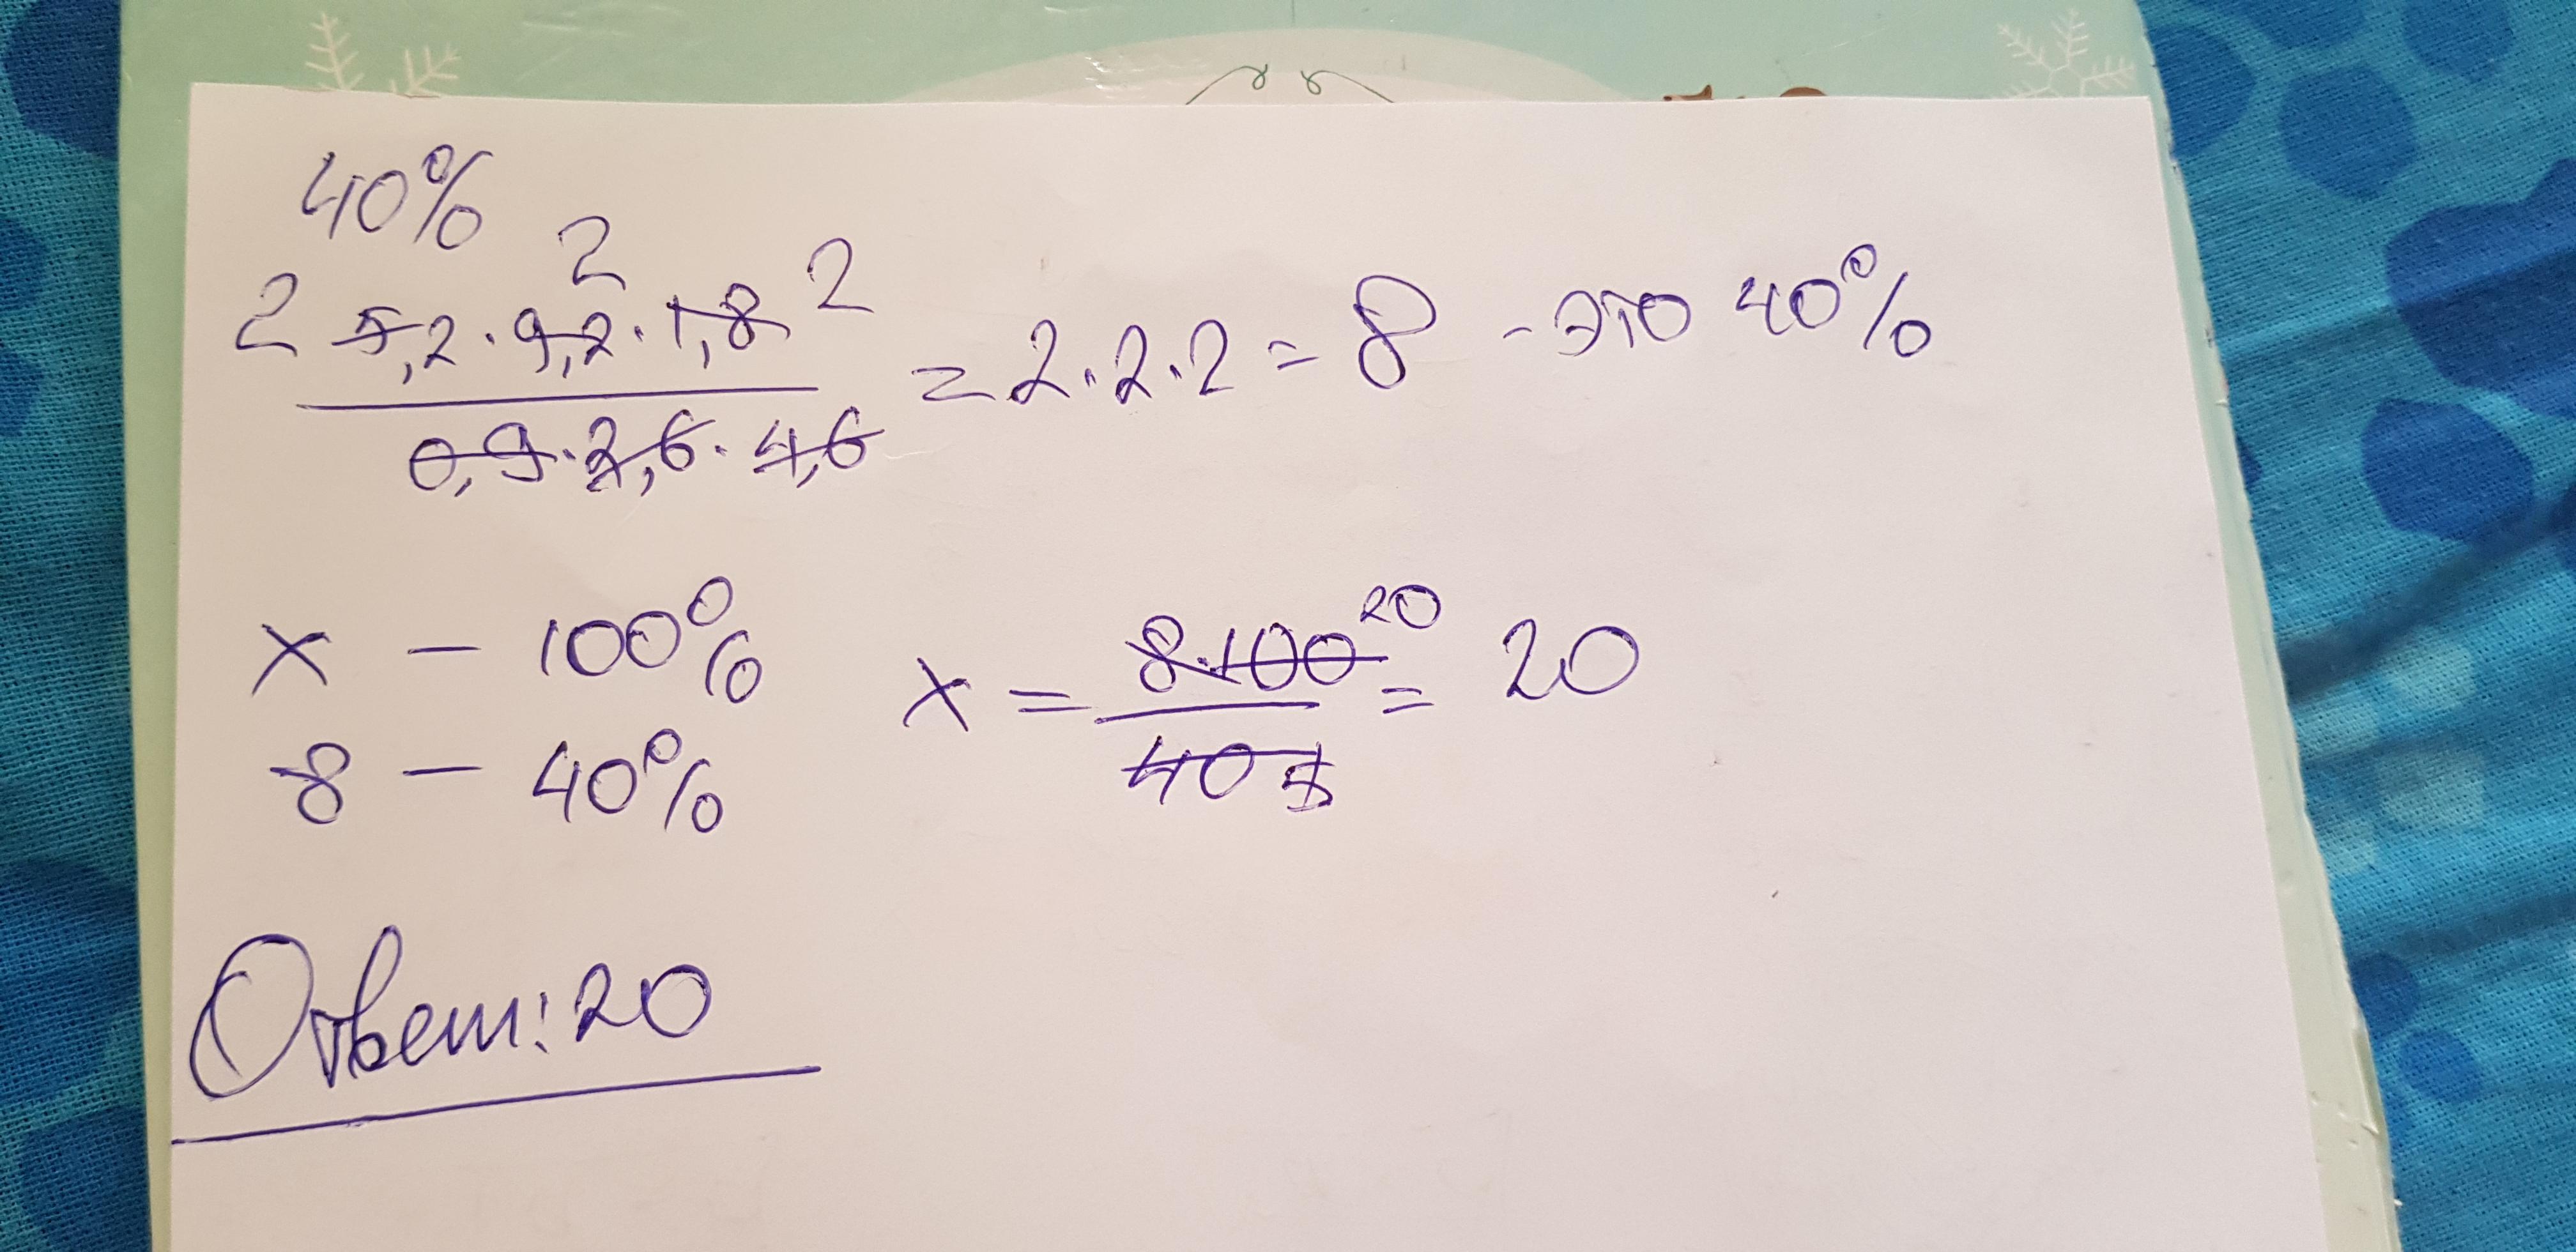 40%
2 5,2 · 9,2 · 1,8 2 2
0,9 · 2,6 · 4,6
= 2 · 2 · 2 = 8 - это 40%
x - 100%
8 - 40%
x = 8·100 20 = 20
40 5
Ответ: 20